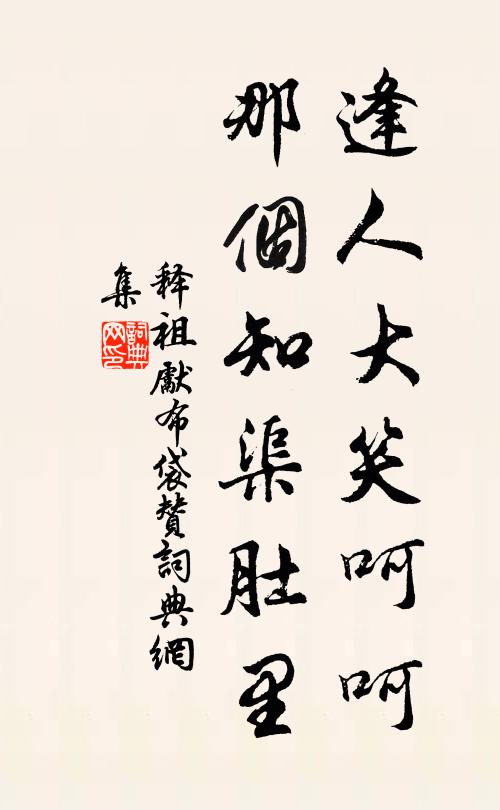 逢人大笑呵呵
那個知渠肚里
釋祖獻布袋贊詞典網
集
詞典網印